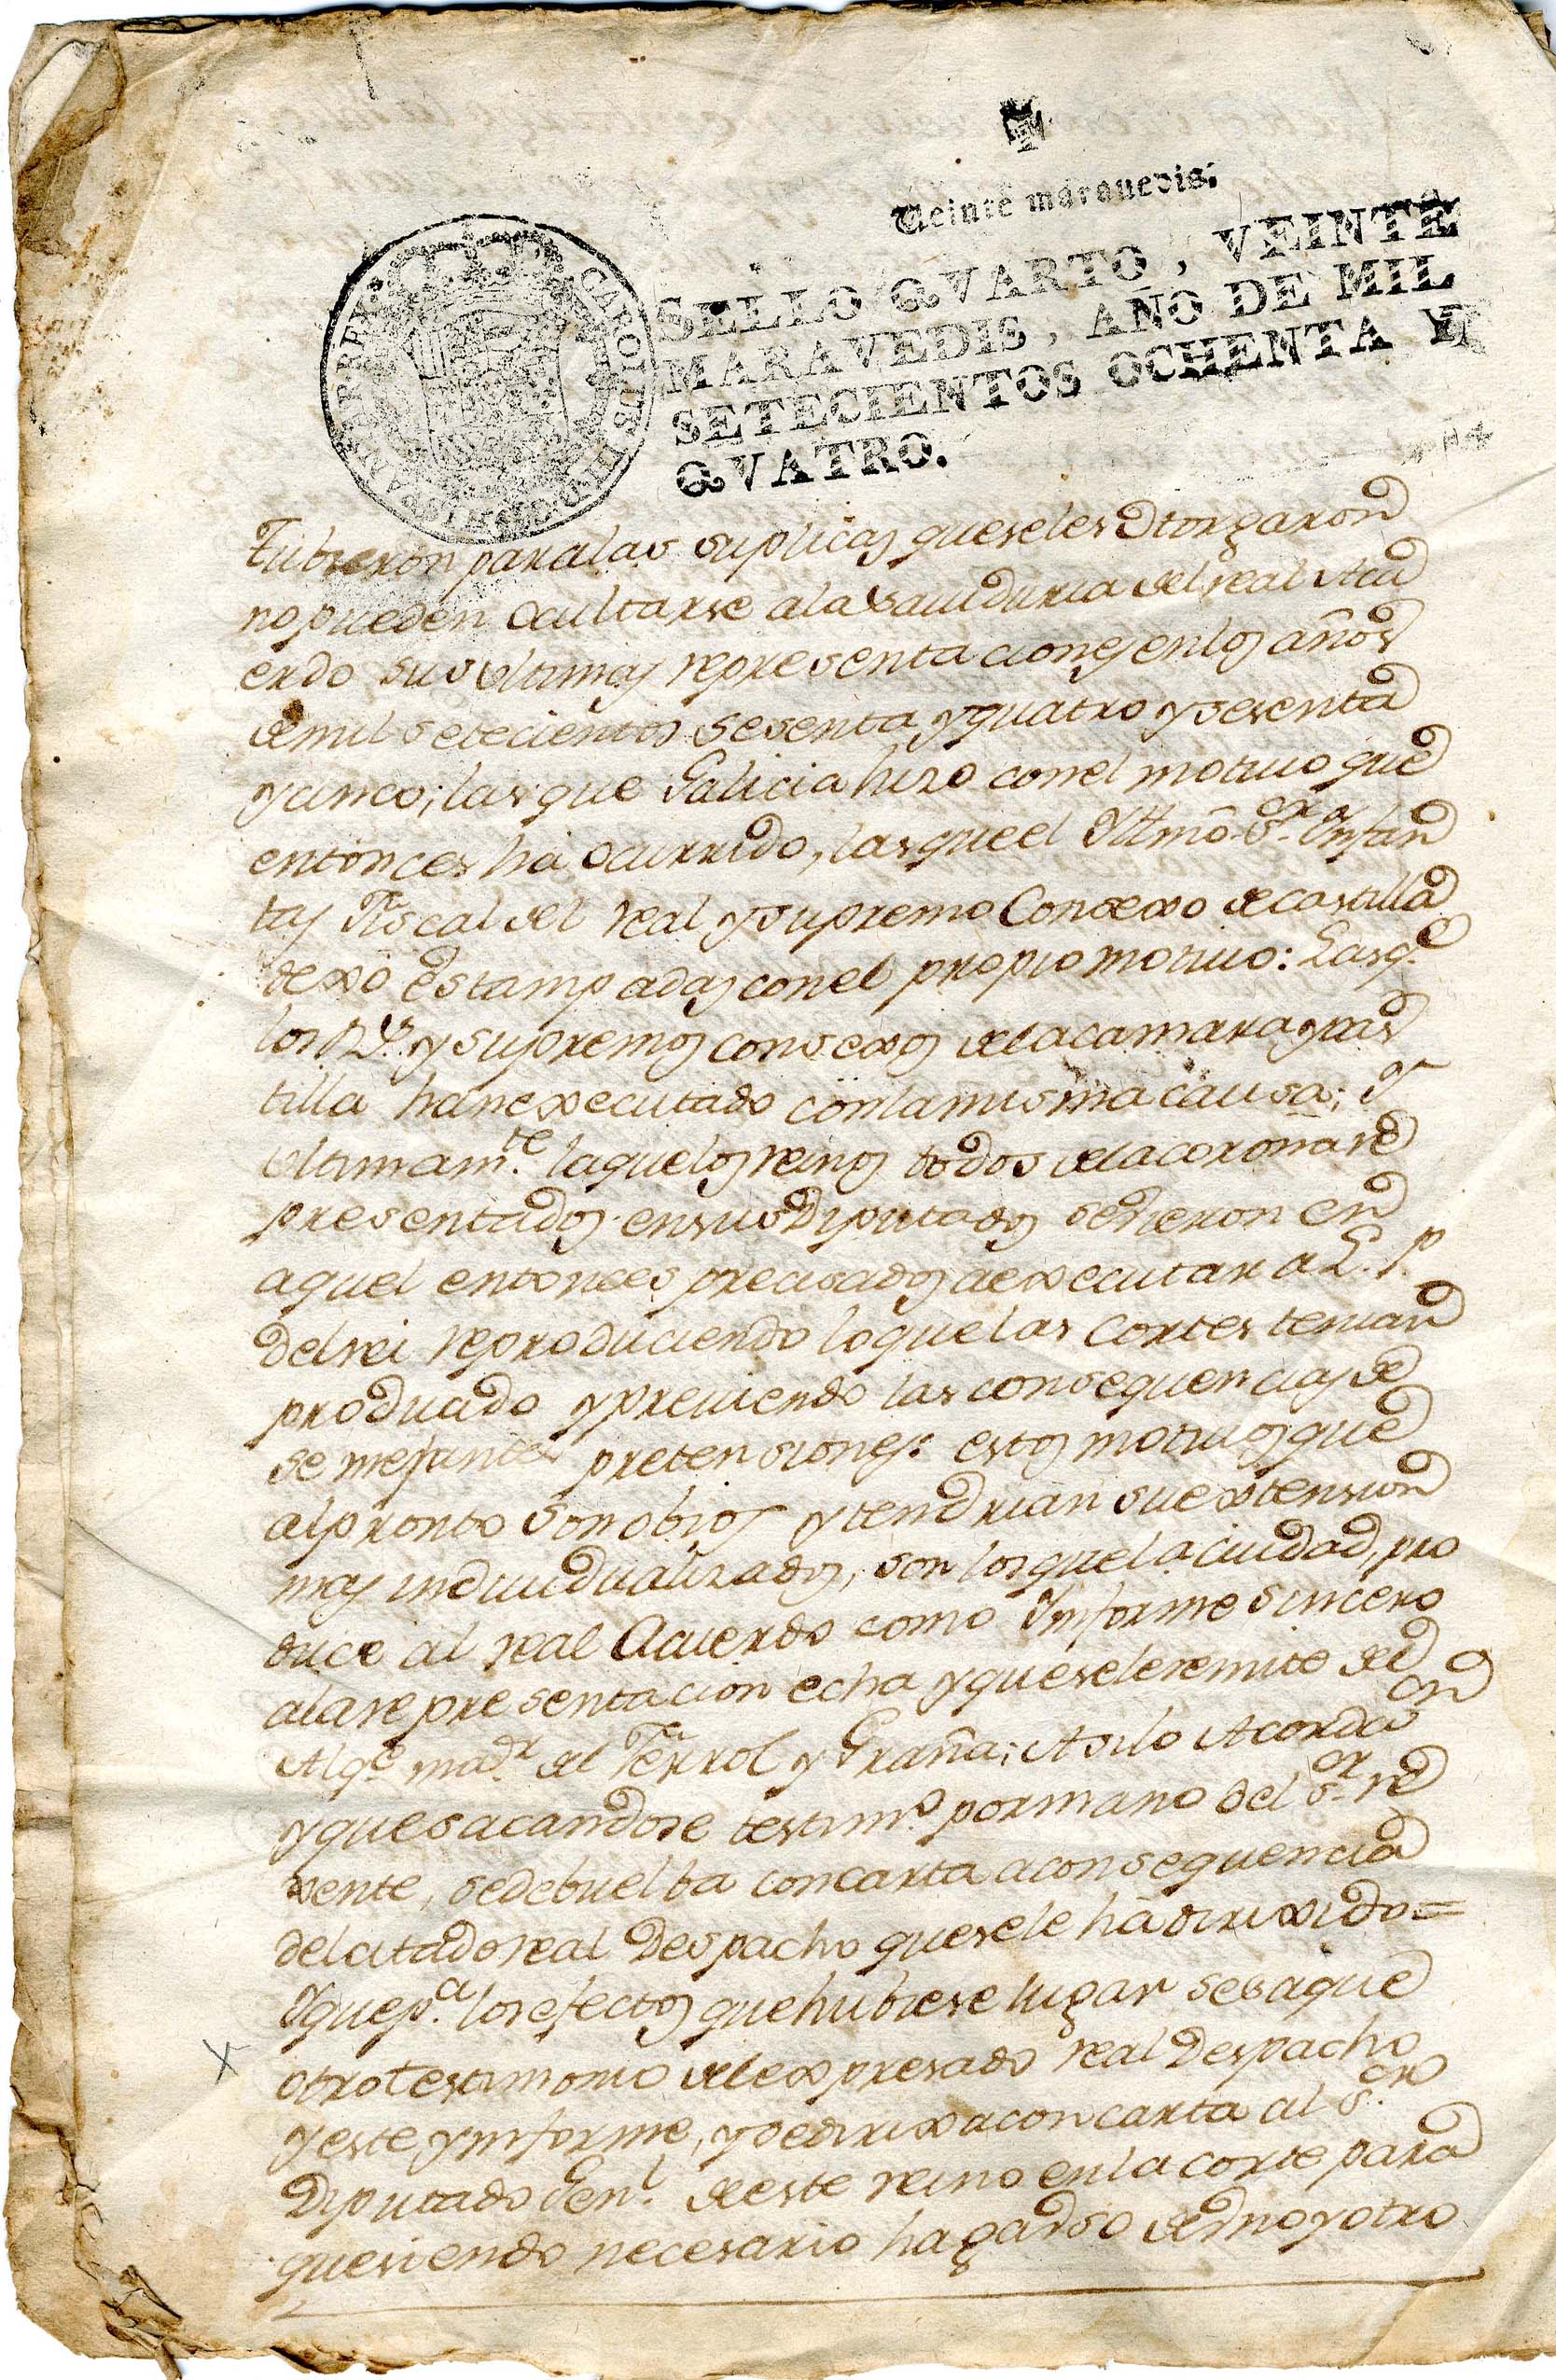 Veinte marauedis.
SELLO QVARTO, VEINTE
MARAVEDIS, AÑO DE MIL
SETECIENTOS OCHENTA Y
QVATRO.
CAROLUS III D G HISPANIAR REX
Tubieron para las suplicas que se les Otorgaron
no pueden ocultarse a la sauiduria del real Acu
erdo sus vltimas representaciones en los años
de mil setecientos sesenta y quatro y sesenta
y cinco; las que Galicia hizo con el motiuo que
entonces ha ocurrido, las que el Yltmô. S.or Infan
tas Fiscal del real y supremo Consexo de castilla
dexo estampadas con el propio motiuo: Las q.e
los R.s y supremos consexos de la camara y cas
tilla han executado con la misma causa; Y
vltimam.te la que los reinos todos de la corona re
presentados en sus Diputados se vieron en
aquel entonces precisados a executar a L. P.
del rei reproduciendo lo que las cortes tenian
producido y preuiendo las consequencias de
semejantes pretensiones: estos motiuos que
al pronto son obios y tendrian su extension
mas indiuidualizados, son los que la ciudad, pro
duce al real Acuerdo como Ynforme sincero
a la representacion echa y que se le remite del
Alq.e ma.or del Ferrol y Graña; Asi lo Acordaron
y que sacandose testim.o por mano del S.or re
xente, se debuelba con carta a consequencia
del citado real Despacho que se le ha dirixido=
Y que p.a los efectos que hubiese lugar se saque
otro testimonio del expresado real Despacho
y este ynforme, y se dirixa con carta al S.or
Diputado Gen.l de este reino en la corte para
que siendo necesario haga vso de vno y otro